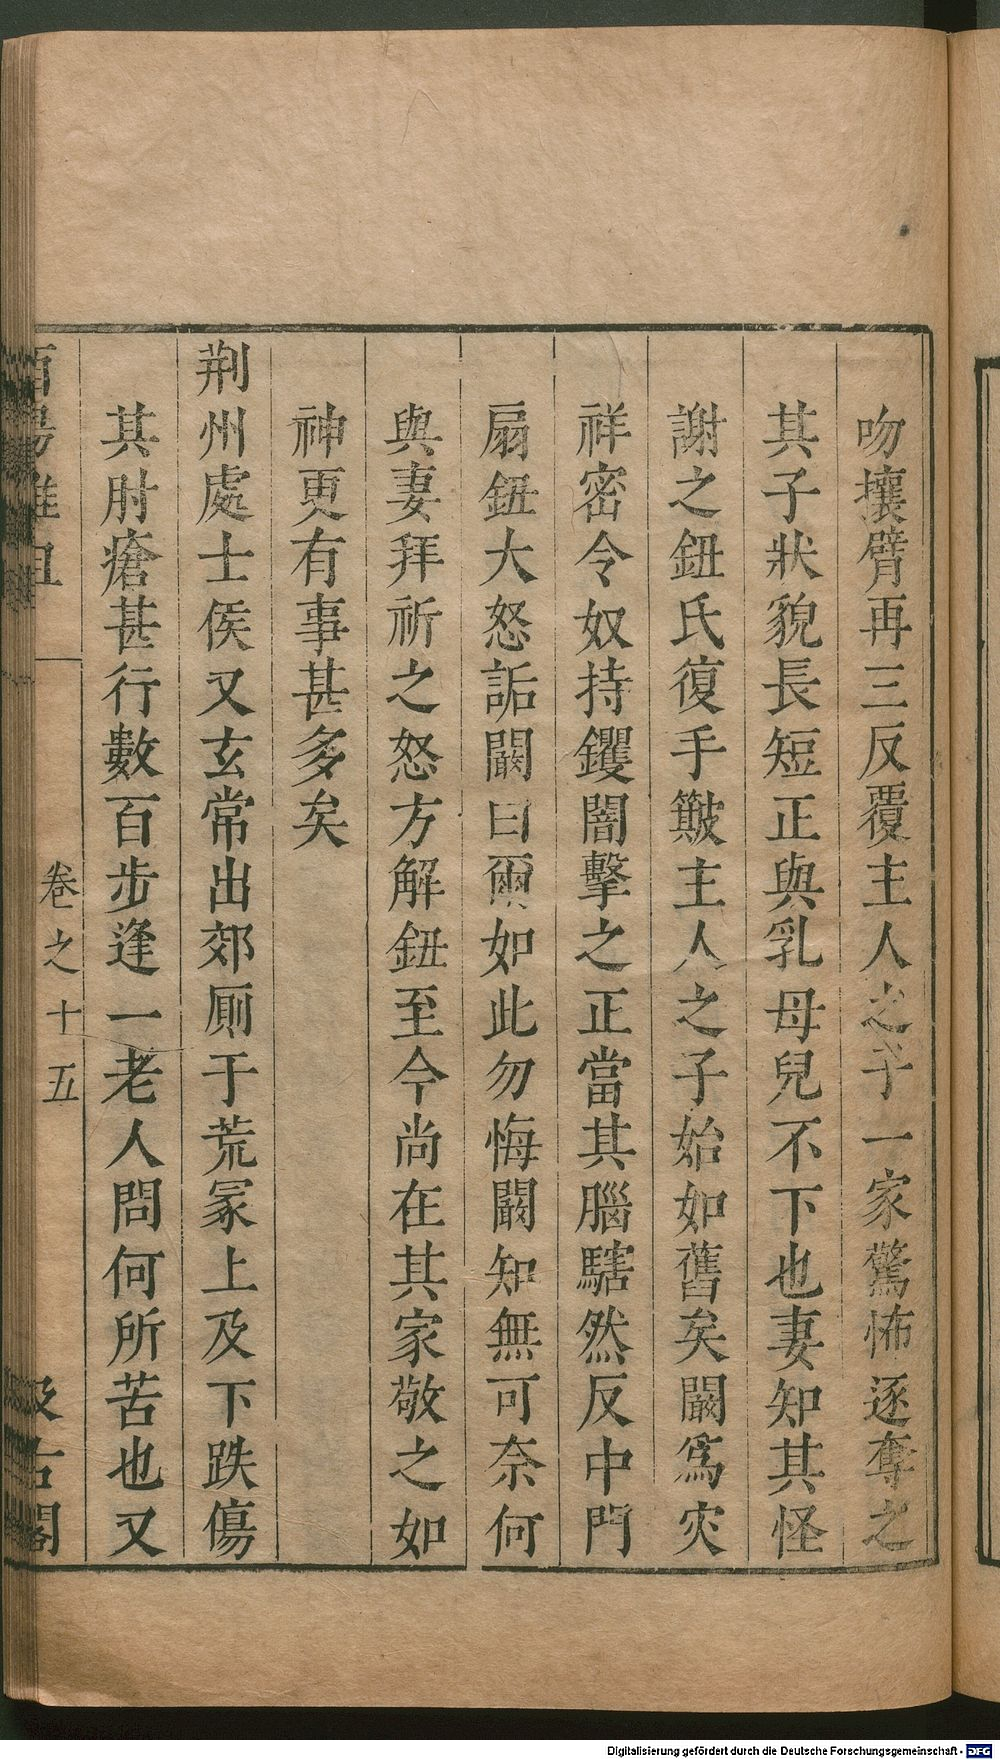 吻攘臂再三反覆主人之子一家驚怖逐奪之
其子狀貌長短正與乳母兒不下也妻知其怪
謝之鈕氏復手簸主人之子始如舊矣闞爲灾
祥密令奴持钁闇擊之正當其腦騞然反中門
扇鈕大怒詬闞曰爾如此勿悔闞知無可奈何
與妻拜祈之怒方解鈕至今尚在其家敬之如
神更有事甚多矣
荆州處士侯又玄常出郊厠于荒冢上及下跌傷
其肘瘡甚行數百步逢一老人問何所苦也又
酉陽雜俎
卷之十五
汲古閣
Digitalisierung gefördert durch die Deutsche Forschungsgemeinschaft - DFG